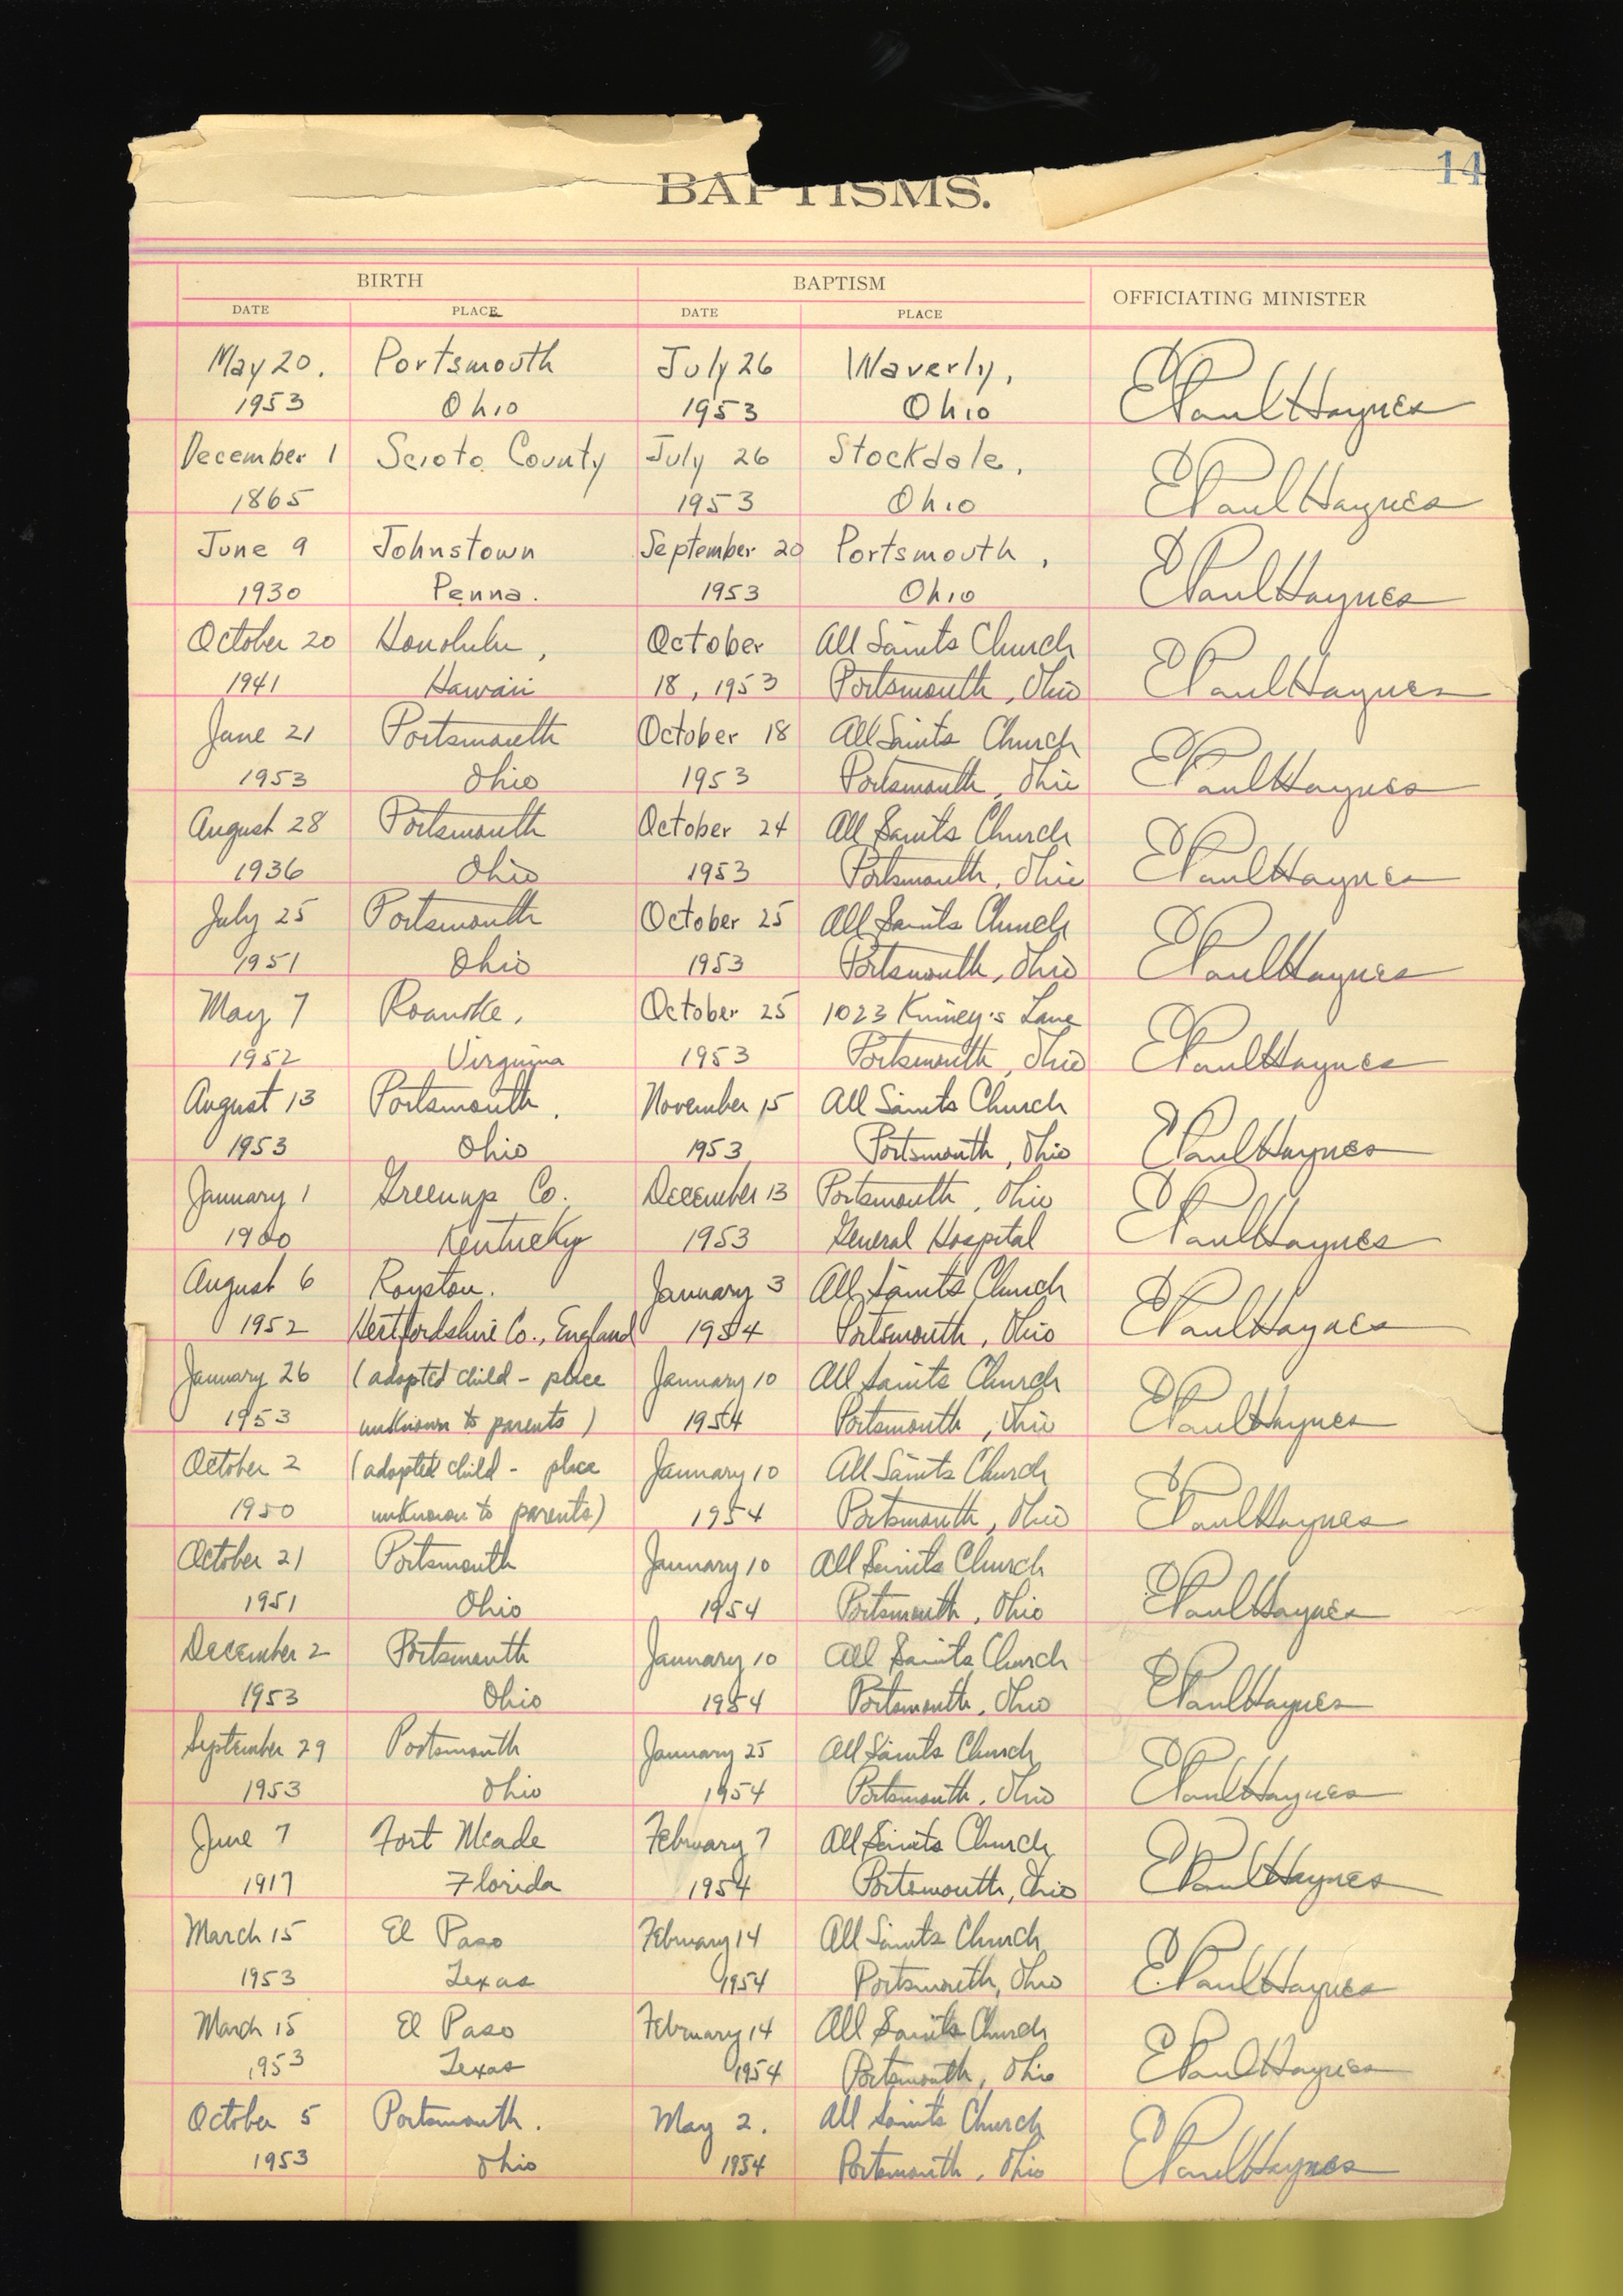 14
BAPTISMS.
BIRTH BAPTISM OFFICIATING MINISTER
DATE PLACE DATE PLACE
May 20. Portsmouth July 26 Waverly,
1953 Ohio 1953 Ohio E Paul Haynes
December 1 Scioto County July 26 Stockdale,
1865 1953 Ohio E Paul Haynes
June 9 Johnstown September 20 Portsmouth,
1930 Penna. 1953 Ohio E Paul Haynes
October 20 Honolulu, October All Saints Church
1941 Hawaii 18, 1953 Portsmouth, Ohio E Paul Haynes
June 21 Portsmouth October 18 All Saints Church
1953 Ohio 1953 Portsmouth, Ohio E Paul Haynes
August 28 Portsmouth October 24 All Saints Church
1936 Ohio 1953 Portsmouth, Ohio E Paul Haynes
July 25 Portsmouth October 25 All Saints Church
1951 Ohio 1953 Portsmouth, Ohio E Paul Haynes
May 7 Roanoke, October 25 1023 Kinney's Lane
1952 Virginia 1953 Portsmouth, Ohio E Paul Haynes
August 13 Portsmouth, November 15 All Saints Church
1953 Ohio 1953 Portsmouth, Ohio E Paul Haynes
January 1 Greenup Co. December 13 Portsmouth, Ohio
1900 Kentucky 1953 General Hospital E Paul Haynes
August 6 Royston. January 3 All Saints Church
1952 Hertfordshire Co., England 1954 Portsmouth, Ohio E Paul Haynes
January 26 (adopted child - place January 10 All Saints Church
1953 unknown to parents) 1954 Portsmouth, Ohio E Paul Haynes
October 2 (adopted child - place January 10 All Saints Church
1950 unknown to parents) 1954 Portsmouth, Ohio E Paul Haynes
October 21 Portsmouth January 10 All Saints Church
1951 Ohio 1954 Portsmouth, Ohio E Paul Haynes
December 2 Portsmouth January 10 All Saints Church
1953 Ohio 1954 Portsmouth, Ohio E Paul Haynes
September 29 Portsmouth January 25 All Saints Church
1953 Ohio 1954 Portsmouth, Ohio E Paul Haynes
June 7 Fort Meade February 7 All Saints Church
1917 Florida 1954 Portsmouth, Ohio E Paul Haynes
March 15 El Paso February 14 All Saints Church
1953 Texas 1954 Portsmouth, Ohio E. Paul Haynes
March 15 El Paso February 14 All Saints Church
1953 Texas 1954 Portsmouth, Ohio E Paul Haynes
October 5 Portsmouth. May 2. All Saints Church
1953 Ohio 1954 Portsmouth, Ohio E Paul Haynes